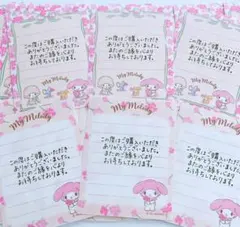 この度はご購入いただき
ありがとうございました。
またのご縁を心より
お待ちしております。
My Melody
この度はご購入いただき
ありがとうございました。
またのご縁を心より
お待ちしております。
My Melody
この度はご購入いただき
ありがとうございました。
またのご縁を心より
お待ちしております。
My Melody
My Melody
この度はご購入いただき
ありがとうございました。
またのご縁を心より
お待ちしております。
My Melody
この度はご購入いただき
ありがとうございました。
またのご縁を心より
お待ちしております。
My Melody
この度はご購入いただき
ありがとうございました。
またのご縁を心より
お待ちしております。